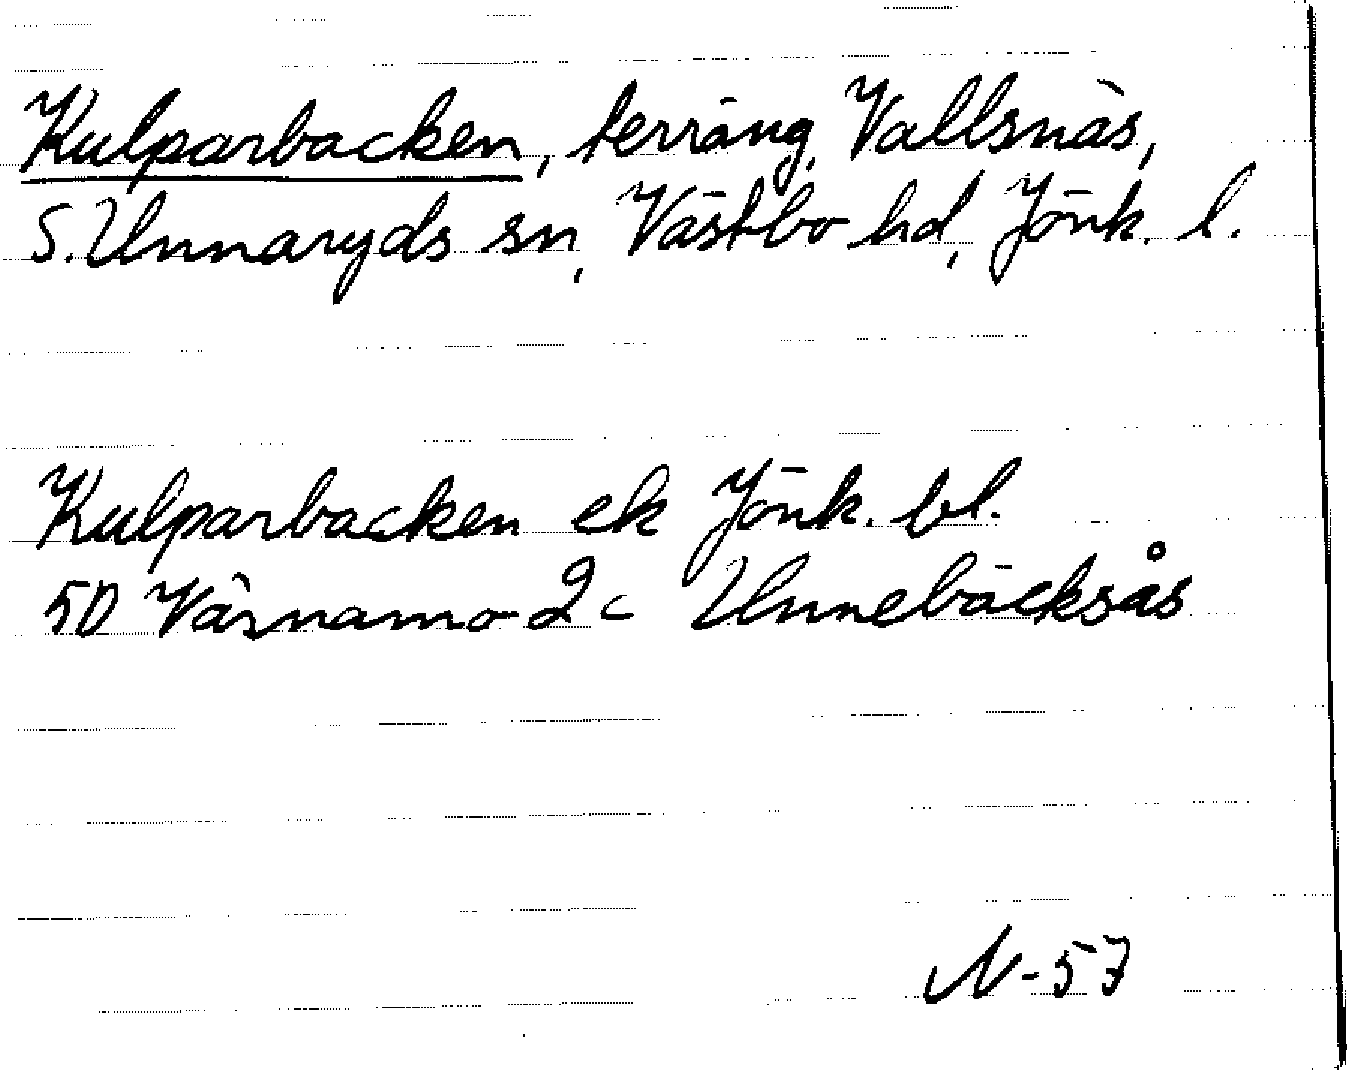 Kulparbacken, terräng, Vallsnäs,
S. Unnaryds sn, Västbo hd, Jönk. l.
Kulparbacken ek Jönk. bl.
50 Värnamo 2c Unnebäcksås
N-57